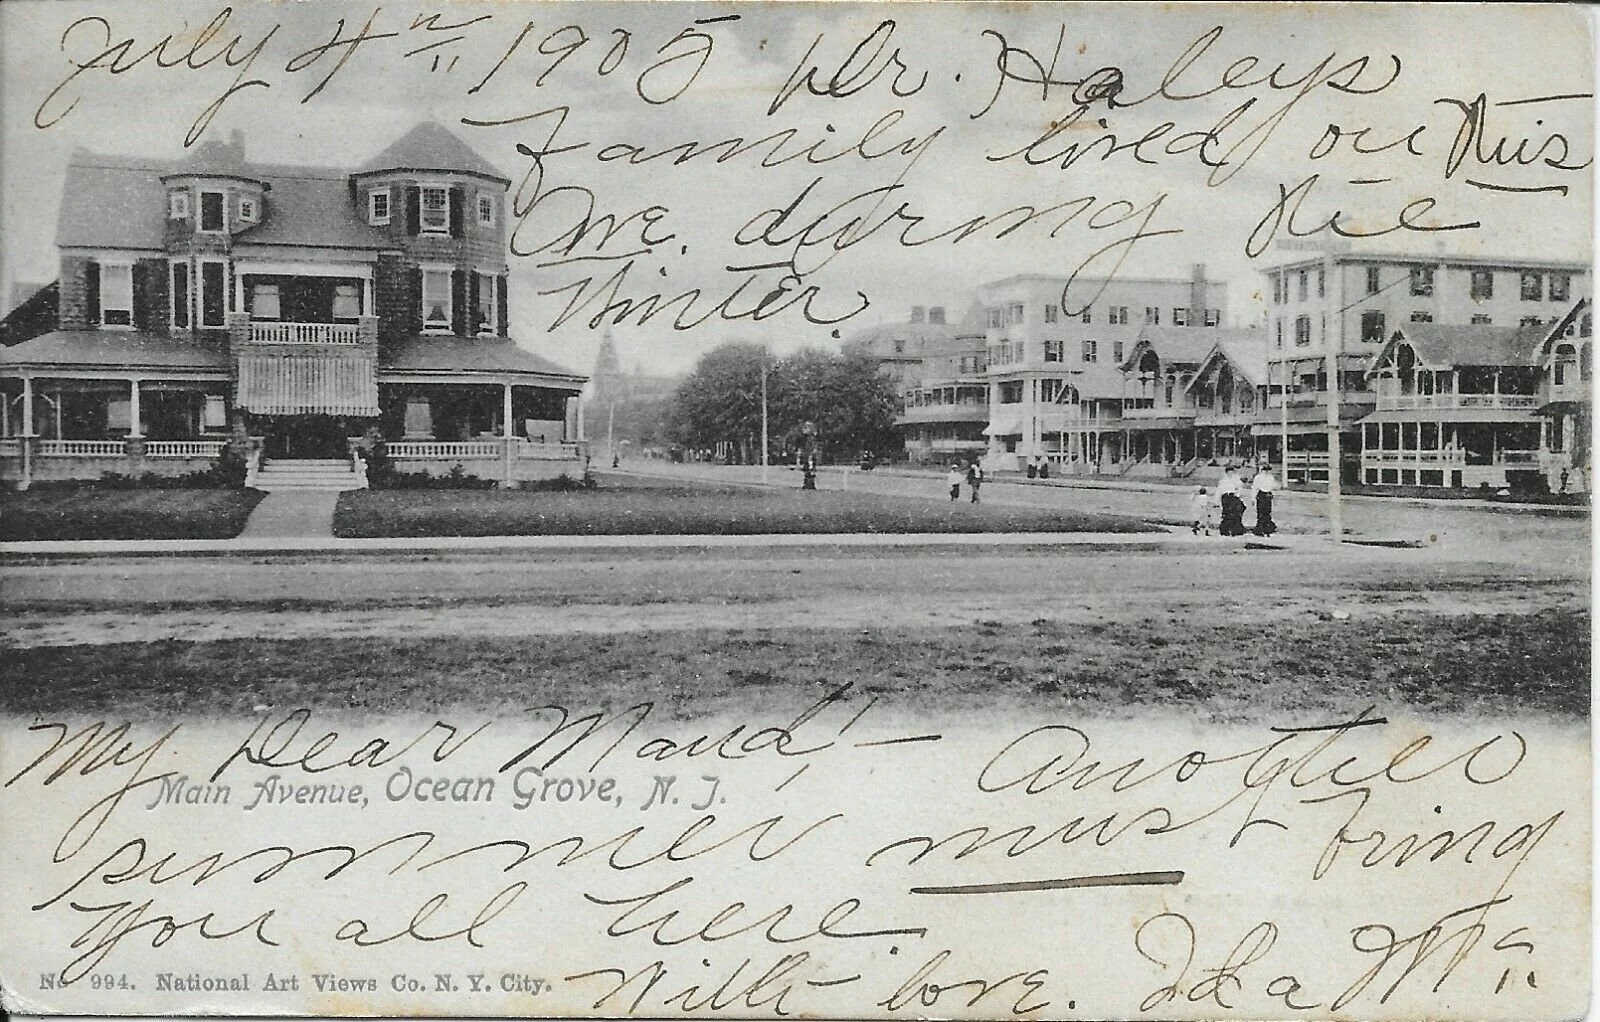 July 4th 1905 Dr. Haleys
Family lived on this
Ave. during the
Winter.
My Dear Maud! — Another
Main Avenue, Ocean Grove, N. J.
summer must bring
you all here.
With love. Ida
No 994. National Art Views Co. N. Y. City.